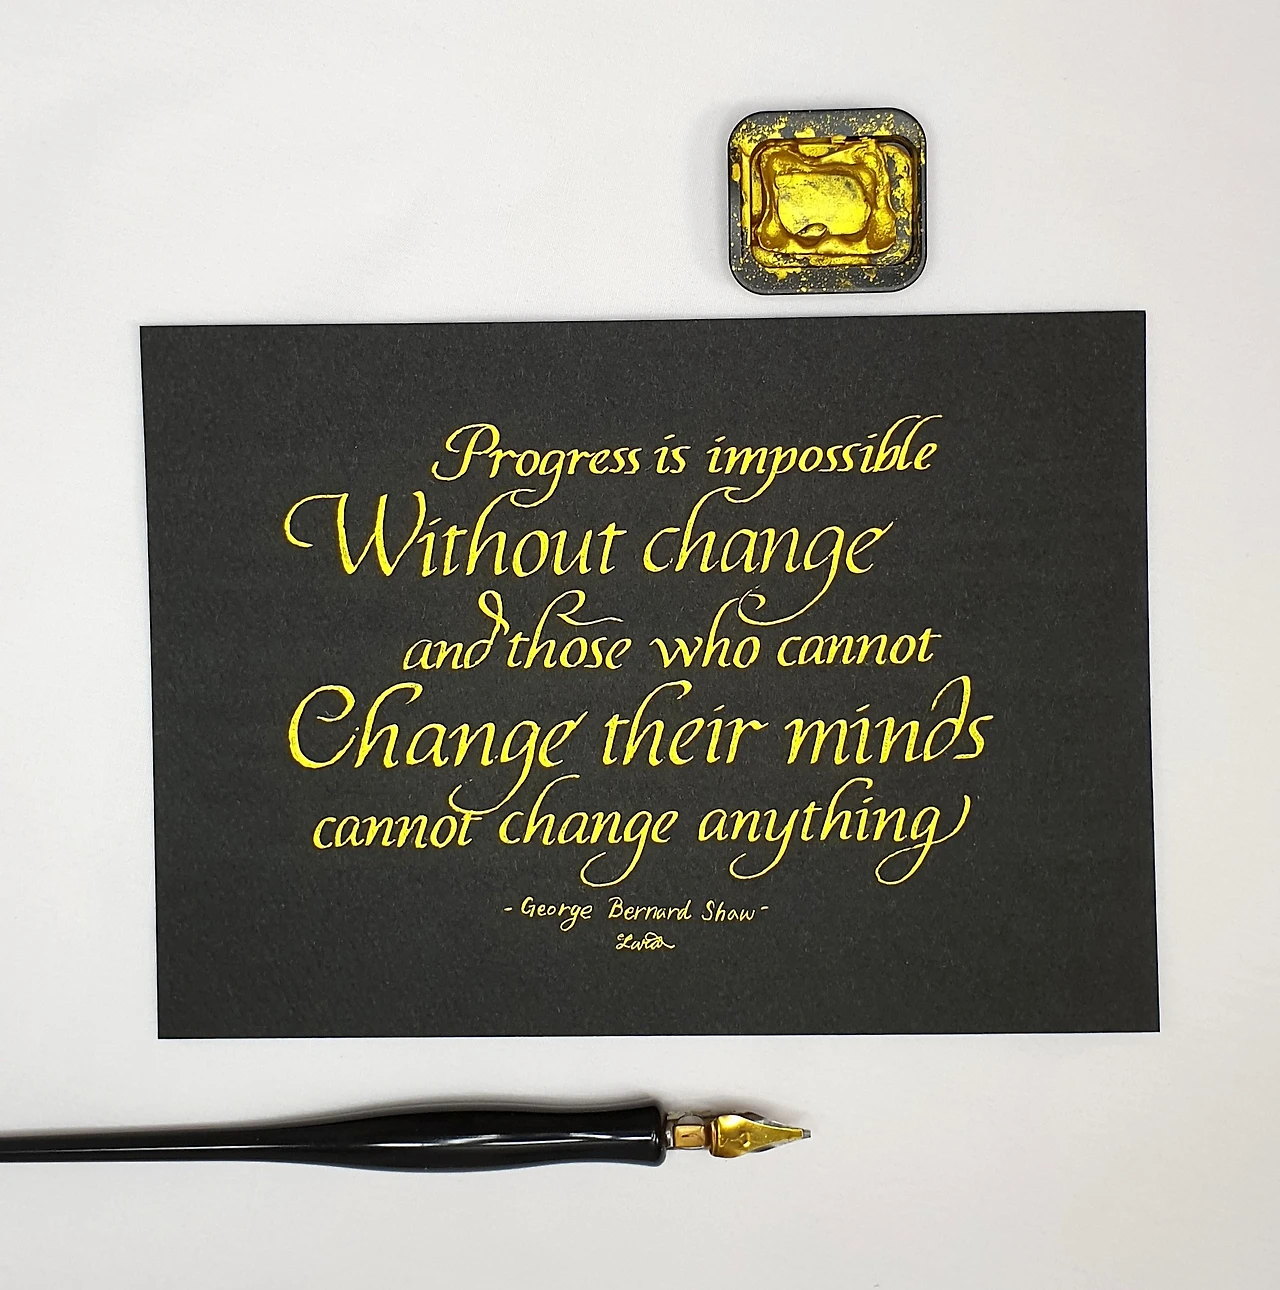 Progress is impossible
Without change
and those who cannot
Change their minds
cannot change anything
- George Bernard Shaw -